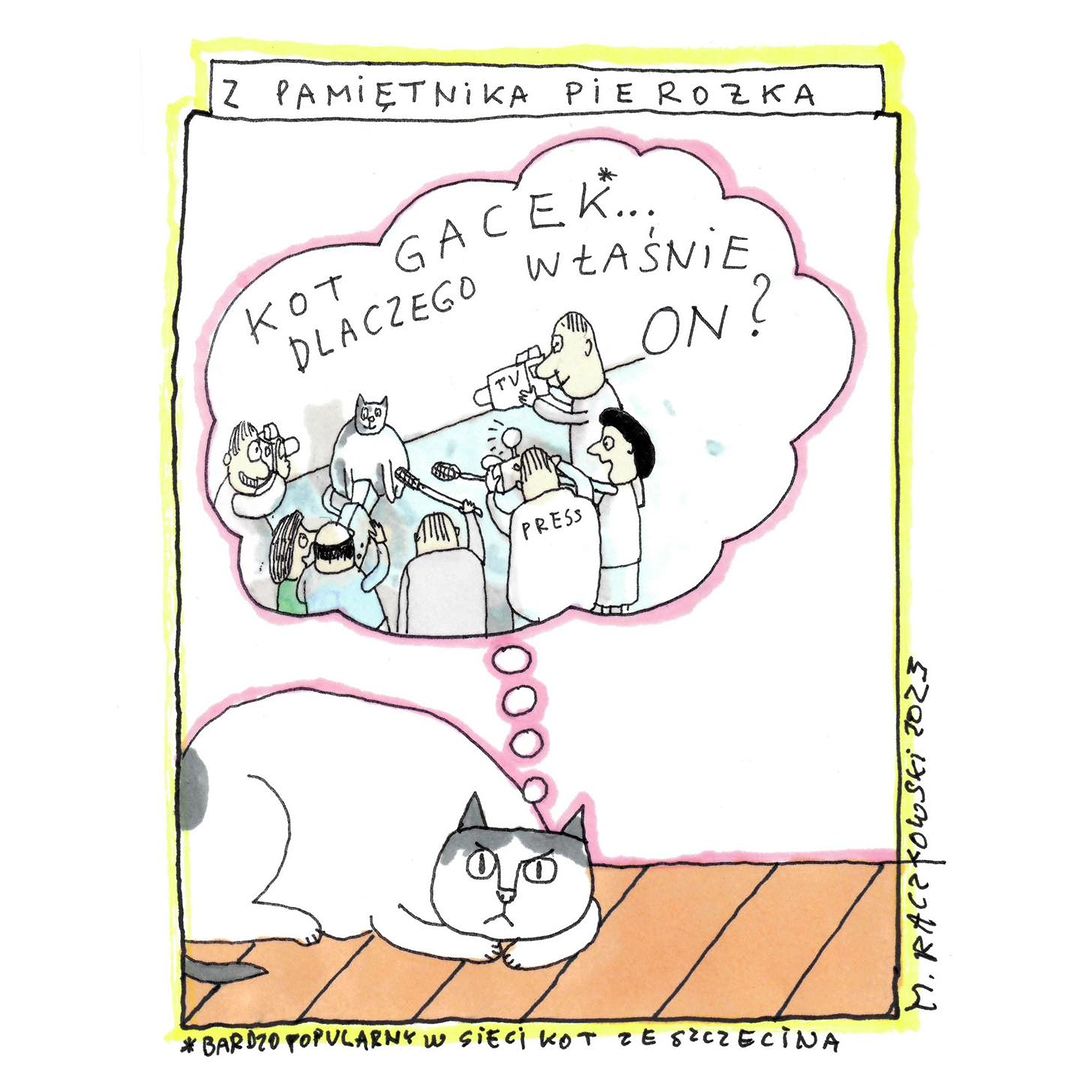 Z PAMIĘTNIKA PIEROZKA
KOT GACEK*...
DLACZEGO WŁAŚNIE
ON?
TV
PRESS
M. RACZKOWSKI 2023
*BARDZO POPULARNY W SIECI KOT ZE SZCZECINA